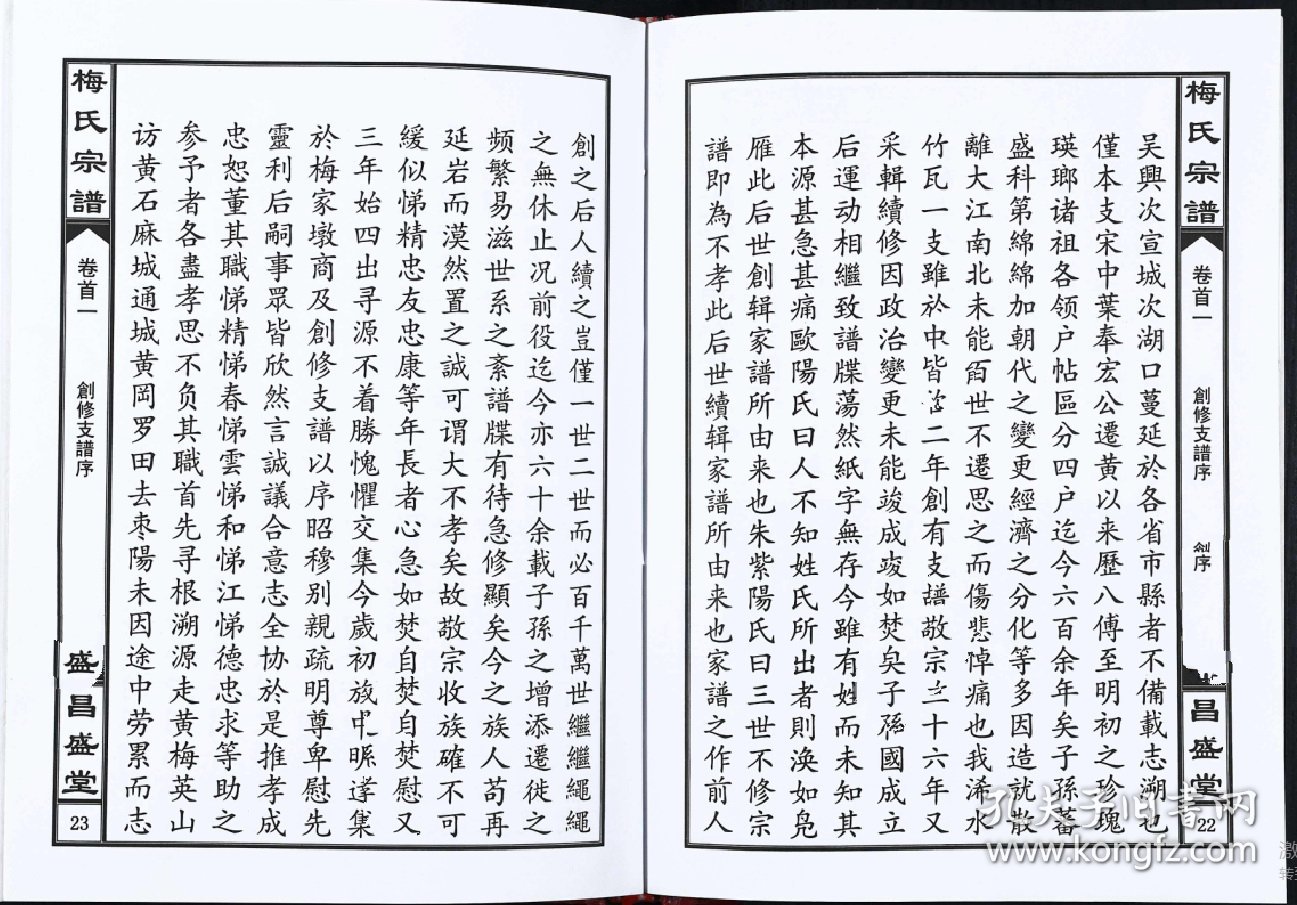 梅氏宗譜
卷首一
創修支譜序
創序
昌盛堂
22
吴興次宣城次湖口蔓延於各省市縣者不備載志溯也
僅本支宋中葉奉宏公遷黄以来歷八傅至明初之珍瑰
瑛瑯诸祖各领户帖區分四户迄今六百余年矣子孫蕃
盛科第綿綿加朝代之變更經濟之分化等多因造就散
離大江南北未能百世不遷思之而傷悲悼痛也我浠水
竹瓦一支雖於中皆二年創有支譜敬宗三十六年又
采輯續修因政治變更未能竣成竣如焚矣子孫國成立
后運动相繼致譜牒蕩然紙字無存今雖有姓而未知其
本源甚急甚痛歐陽氏曰人不知姓氏所出者則渙如凫
雁此后世創辑家譜所由来也朱紫陽氏曰三世不修宗
譜即為不孝此后世續辑家譜所由来也家譜之作前人
創之后人續之豈僅一世二世而必百千萬世繼繼繩繩
之無休止况前役迄今亦六十余載子孫之增添遷徙之
频繁易滋世系之紊譜牒有待急修顯矣今之族人苟再
延岩而漠然置之誠可谓大不孝矣故敬宗收族確不可
緩似悌精忠友忠康等年長者心急如焚自焚自焚慰又
三年始四出寻源不着勝愧懼交集今歲初旅中縣遘集
於梅家墩商及創修支譜以序昭穆别親疏明尊卑慰先
靈利后嗣事眾皆欣然言誠議合意志全协於是推孝成
忠恕董其職悌精悌春悌雲悌和悌江悌德忠求等助之
参予者各盡孝思不负其職首先寻根溯源走黄梅英山
访黄石麻城通城黄冈罗田去枣陽未因途中劳累而志
梅氏宗譜
卷首一
創修支譜序
盛昌盛堂
23
孔夫子旧书网
www.kongfz.com